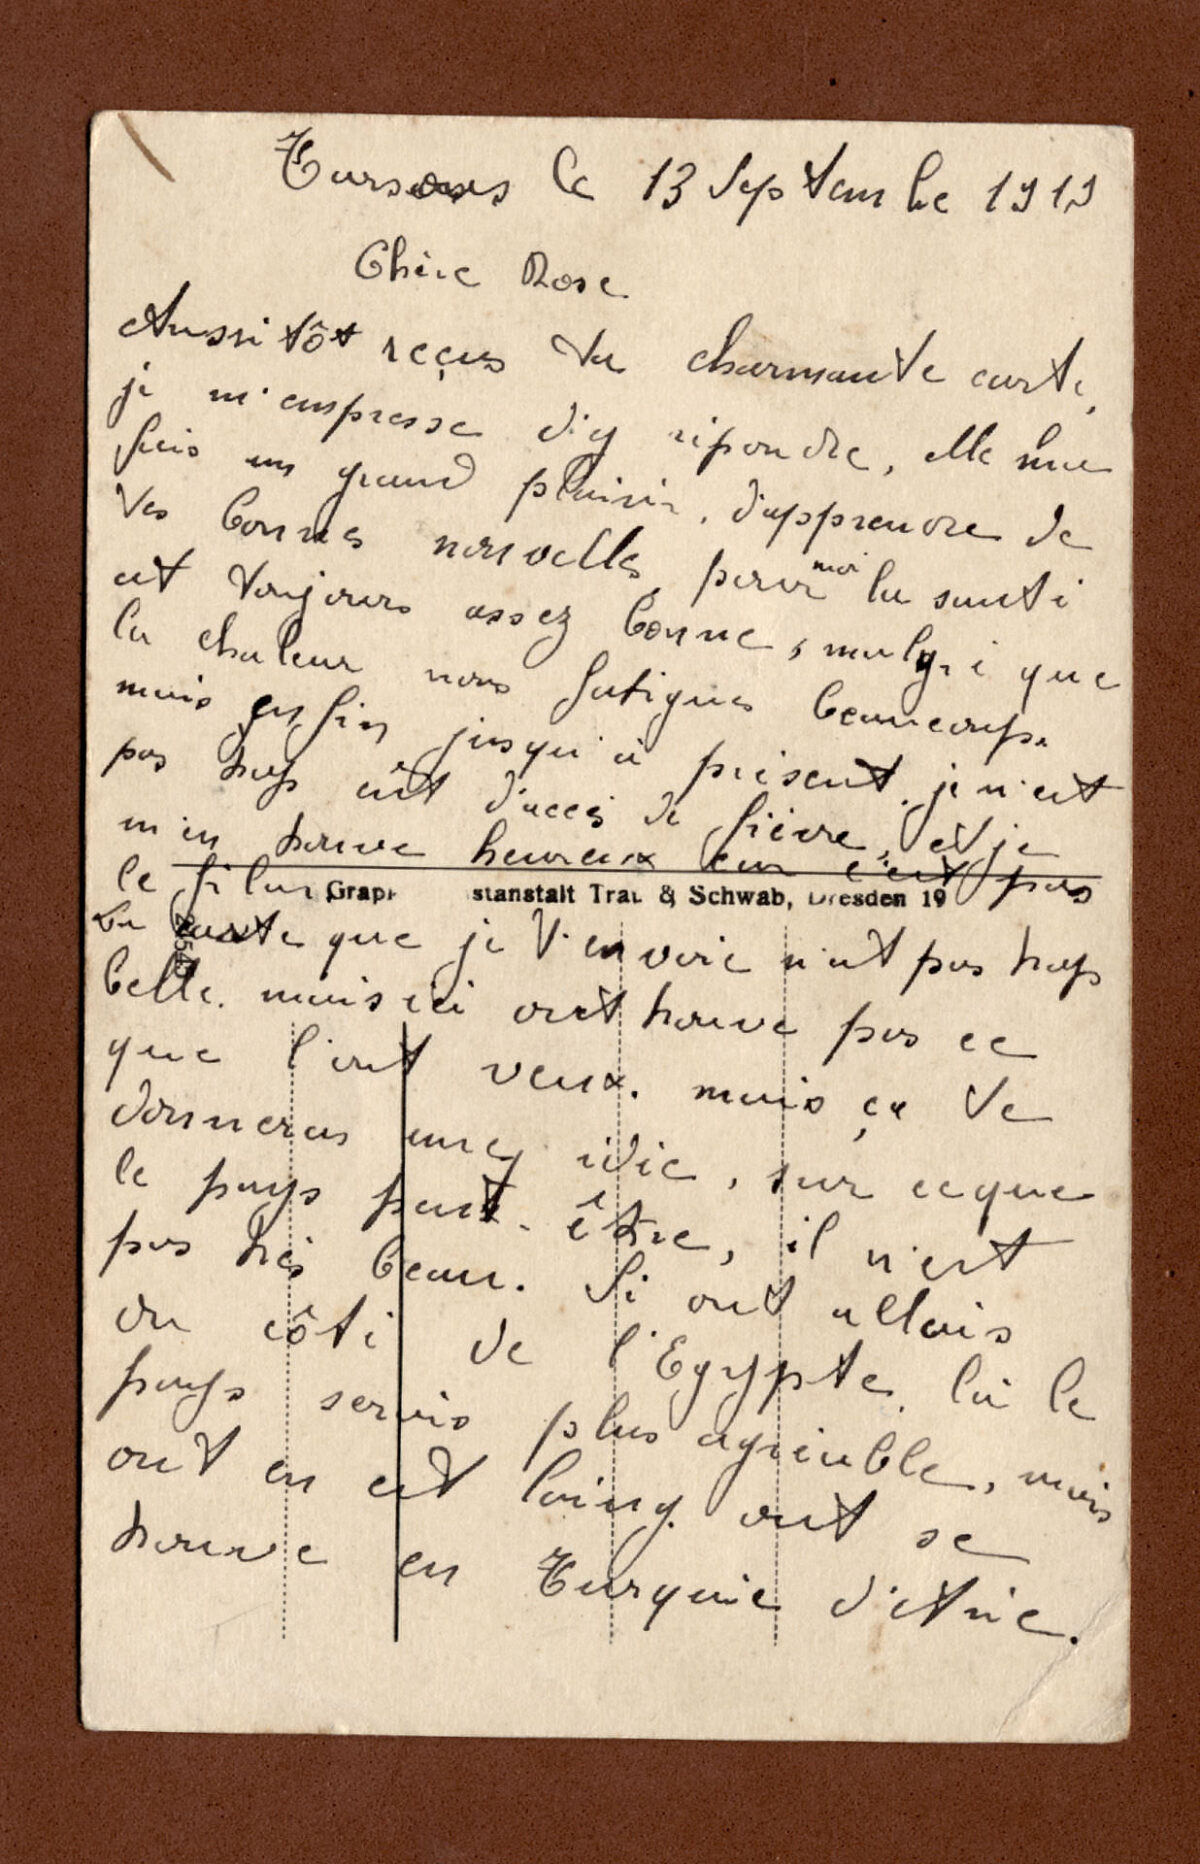 Tarsous le 13 Septembe 1919
Chère Rose
Aussitôt reçus ta charmante carte,
je m'empresse d'y répondre, elle me
fais un grand plaisir, d'apprendre de
tes bonnes nouvelles, pour moi la santé
est toujours assez bonne, malgré que
la chaleur nous fatigues beaucoup.
mais enfin jusqu'à présent, je n'est
pas trop eût d'accès de fièvre, et je
m'en trouve heureux car c'est pas
le filon
Graph stanstalt Trau & Schwab, Dresden 19
La carte que je t'envoie n'est pas trop
belle. mais ici ont trouve pas ce
que l'ont veux. mais ça te
donneras une idée, sur ce que
le pays peut-être, il n'est
pas très beau. Si ont allais
du côté de l'Egypte, là le
pays serais plus agréable, mais
ont en est loing. ont se
trouve en Turquie d'Asie.